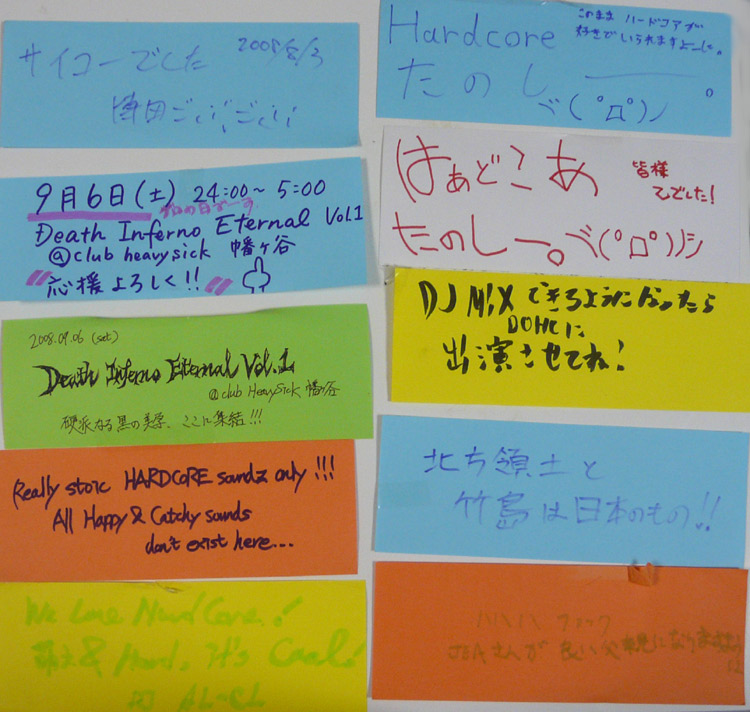 サイコーでした 2008/8/3
9月6日(土) 24:00〜5:00
Death Inferno Eternal Vol.1
@club heavysick 幡ヶ谷
応援よろしく!!
2008.09.06 (sat)
Death Inferno Eternal Vol.1
@club HeavySick 幡ヶ谷
硬派なる黒の美学、ここに集結!!!
Really stoic HARDCORE soundz only !!!
All Happy & Catchy sounds
don't exist here...
We Love Hard Core!
& Hard, it's Cool!
Hardcore
このまま ハードコアが
好きでいられますように。
たのしー。
ヾ(゚Д゚)ノ
はぁどこあ
皆様
乙でした!
たのしー。ヾ(゚Д゚)ﾉｼ
DJ MIXできるようになったら
DOHCに
出演させてね!
北方領土と
竹島は日本のもの!!
JEAさんが良い父親になりますように